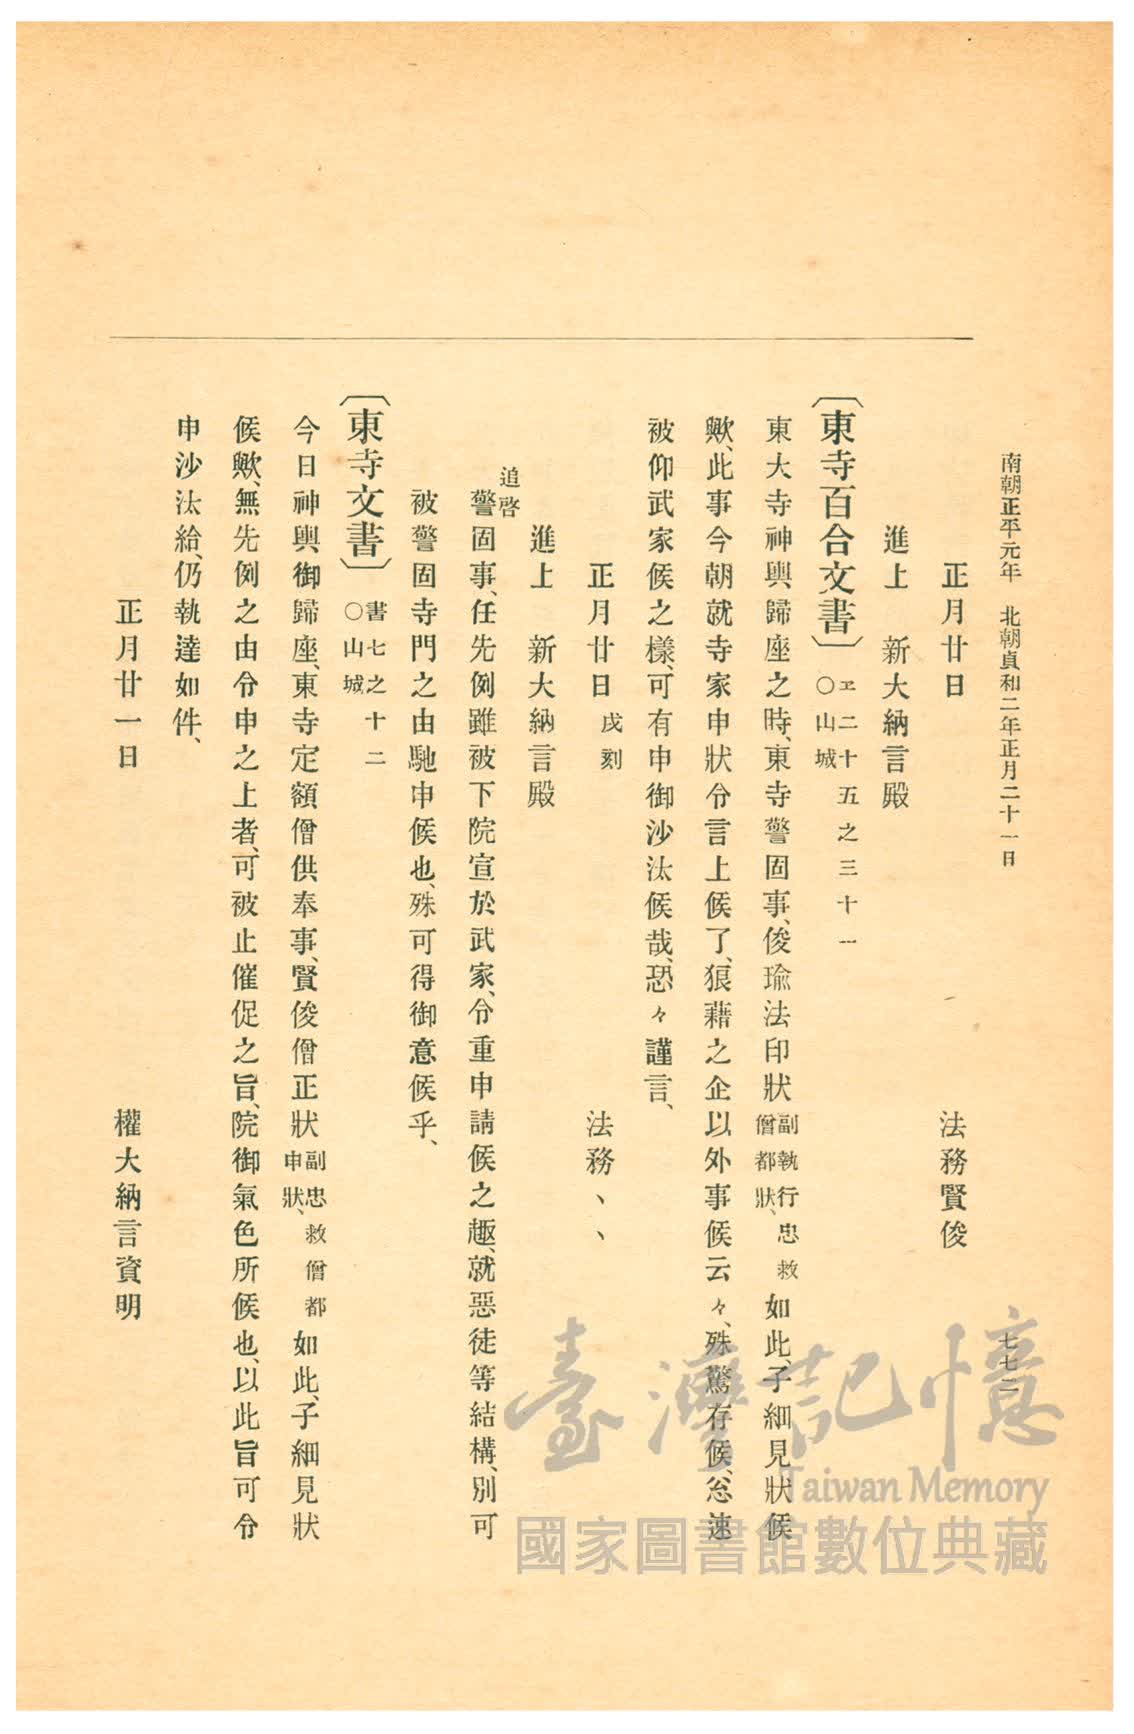 南朝正平元年　北朝貞和二年正月二十一日
七七二
正月廿日　法務賢俊
進上　新大納言殿
〔東寺百合文書〕ヱ二十五之三十一
○山城
東大寺神輿歸座之時、東寺警固事、俊瑜法印狀副執行忠救僧都狀、如此、子細見狀候
歟、此事今朝就寺家申狀令言上候了、狼藉之企以外事候云々、殊驚存候、忩速
被仰武家候之樣、可有申御沙汰候哉、恐々謹言、
正月廿日戌刻　法務、、
進上　新大納言殿
追啓
警固事、任先例雖被下院宣於武家、令重申請候之趣、就惡徒等結構、別可
被警固寺門之由馳申候也、殊可得御意候乎、
〔東寺文書〕書七之十二
○山城
今日神輿御歸座、東寺定額僧供奉事、賢俊僧正狀副忠救僧都申狀、如此、子細見狀
候歟、無先例之由令申之上者、可被止催促之旨、院御氣色所候也、以此旨可令
申沙汰給、仍執達如件、
正月廿一日　權大納言資明
臺灣記憶
Taiwan Memory
國家圖書館數位典藏